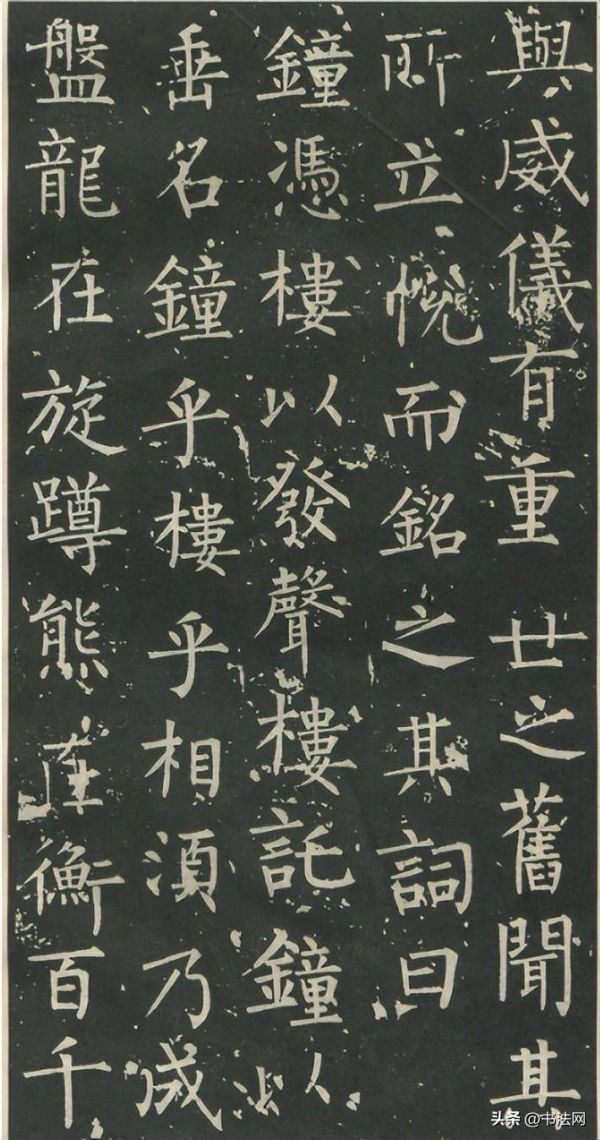 與威儀有重世之舊聞其
所立悅而銘之其詞曰
鐘憑樓以發聲樓託鐘以
垂名鐘乎樓乎相湏乃成
盤龍在旋蹲熊在衡百千
头条 @书法网